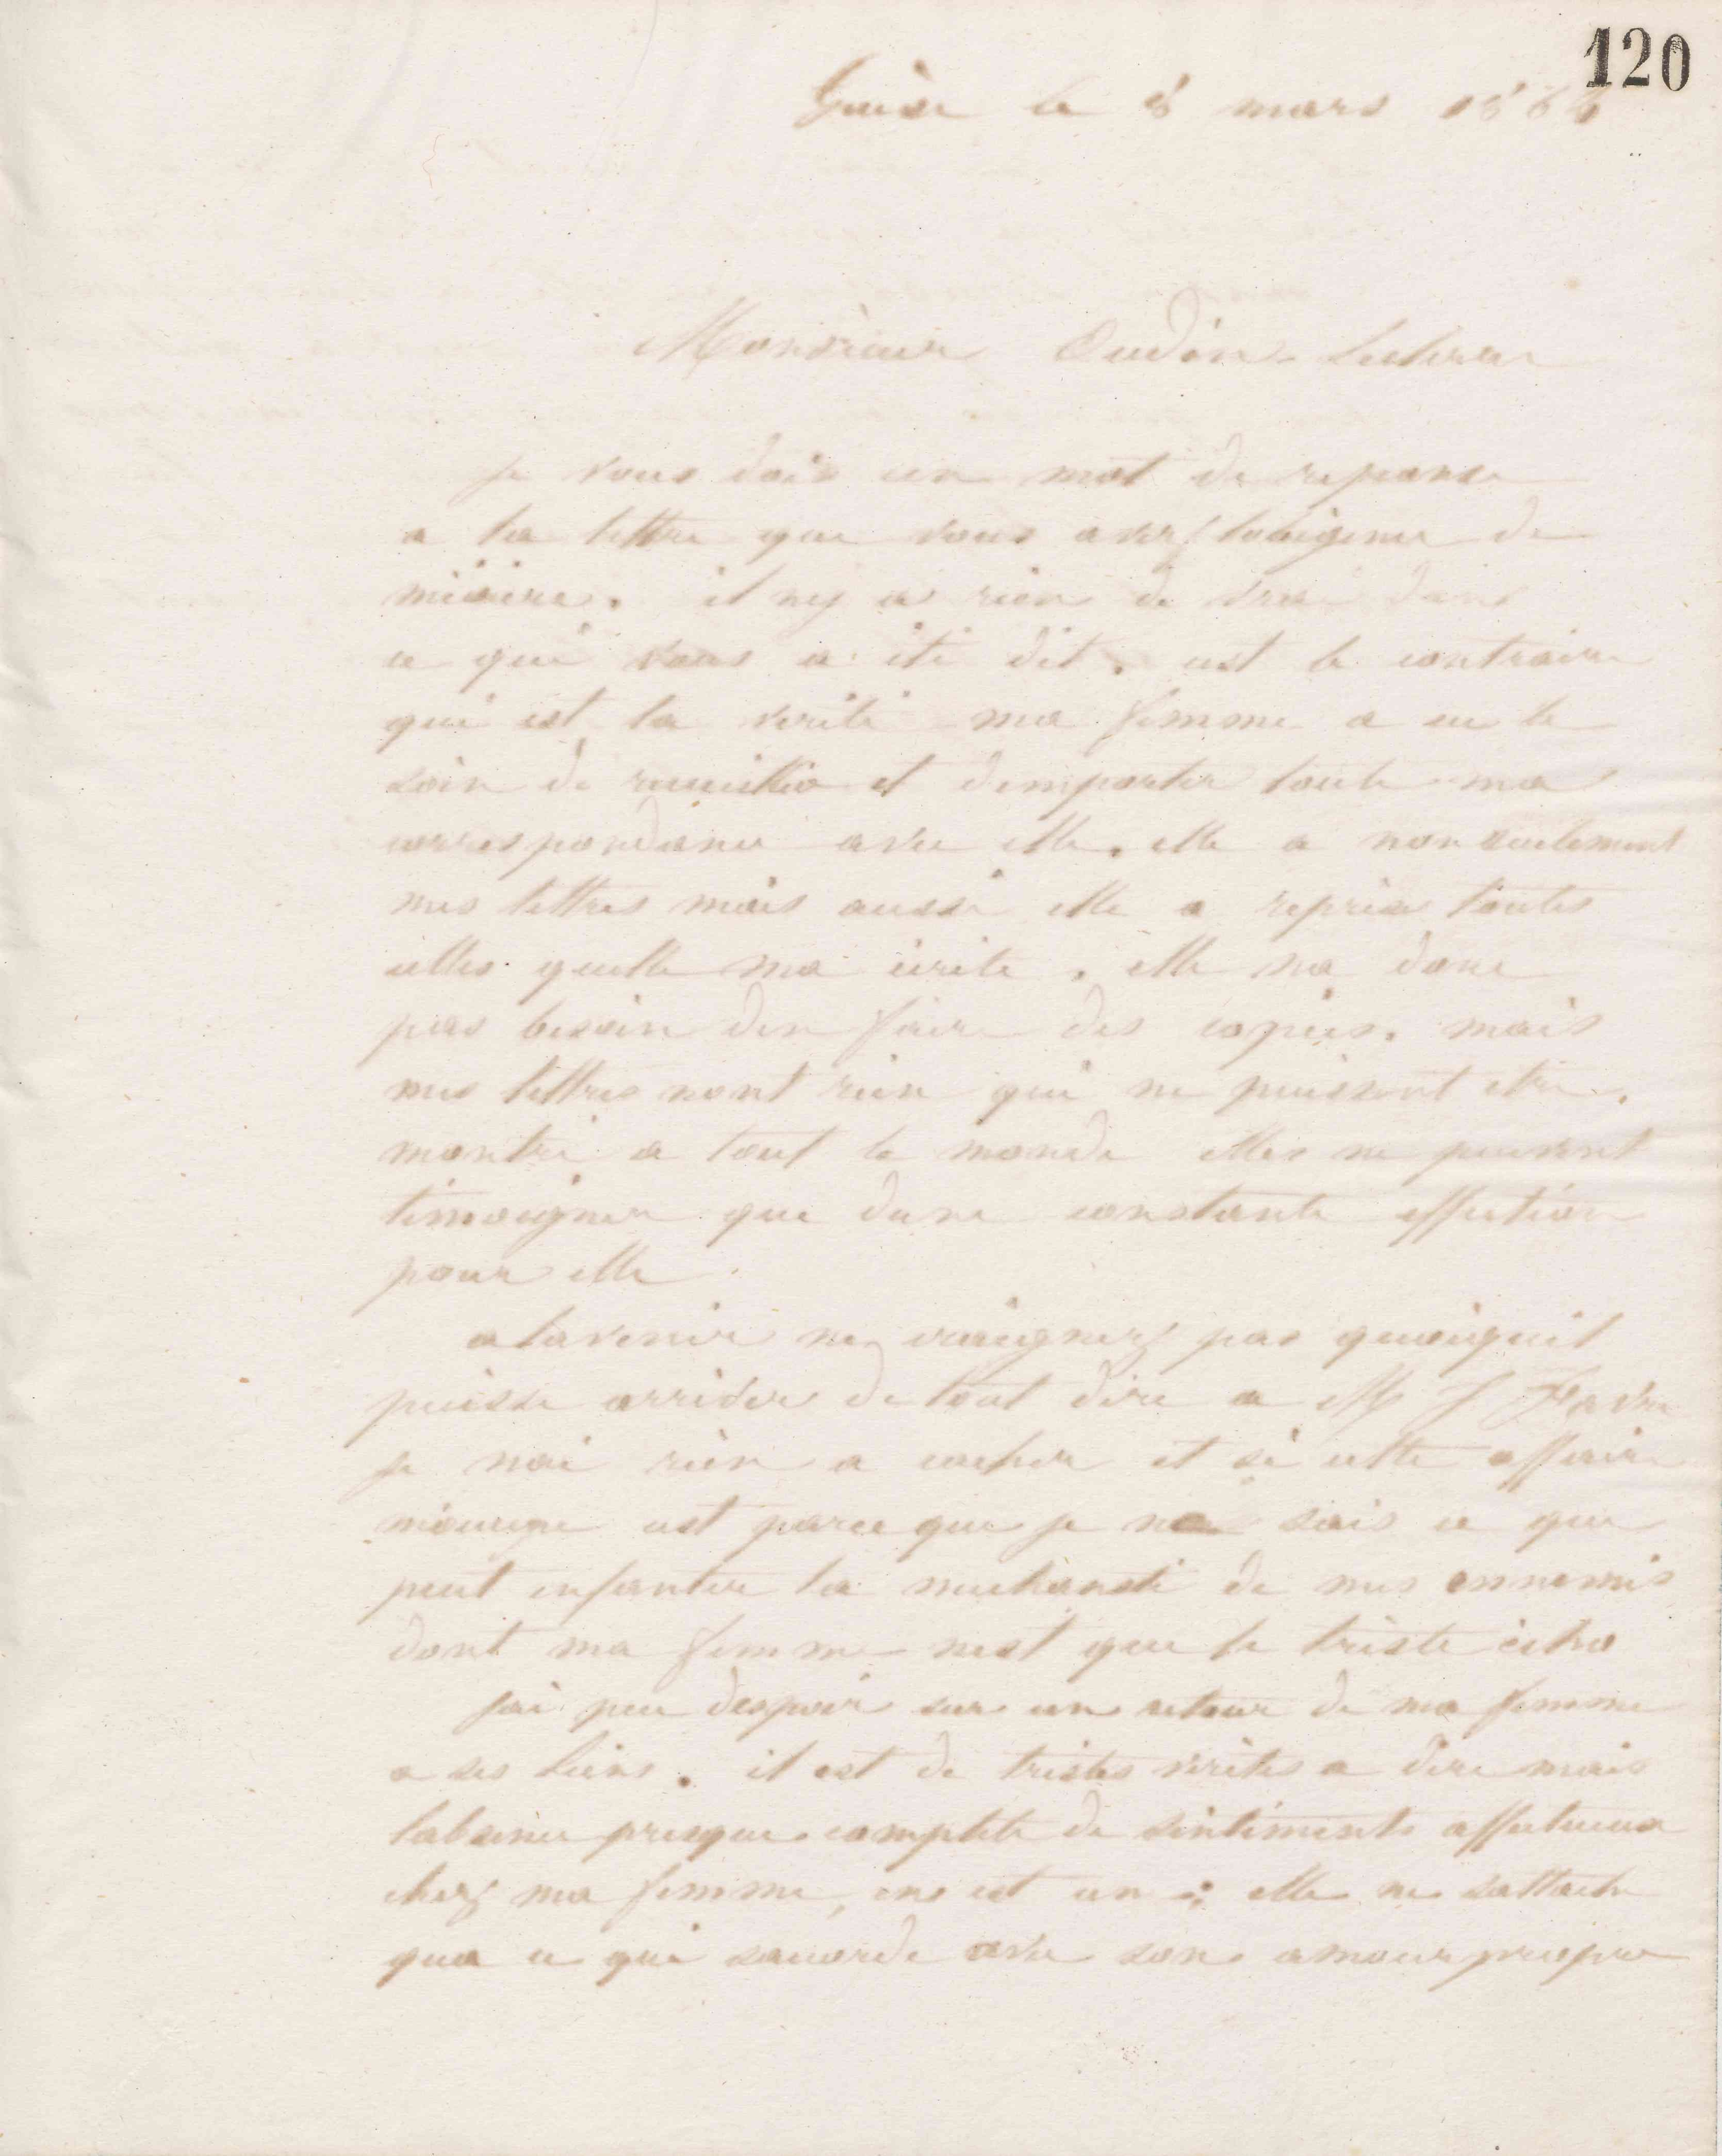 120
Guise le 8 mars 1864
Monsieur Oudin-Leclère
je vous dois un mot de reponse
a la lettre que vous avez lobligence de
mécrire. il ny a rien de vrai dans
ce qui vous a été dit. cest le contraire
qui est la verité ma femme a eu le
soin de recueillir et demporter toute ma
correspondance avec elle. elle a non seulement
mes lettres mais aussi elle a repris toutes
celles quelle ma écrite. elle na donc
pas besoin den faire des copies. mais
mes lettres nont rien qui ne puissent etre
montré a tout le monde elles ne peuvent
témoigner que dune constante affection
pour elle.
a lavenir ne craignez pas quoiquil
puisse arriver de tout dire a M J Favre
je nai rien a cacher et si cette affaire
meurge cest parce que je ne sais ce que
peut enfanter la mechanceté de mes ennemis
dont ma femme nest que le triste écho
jai peu despoir sur un retour de ma femme
a ses liens. il est de tristes vérités a dire mais
labsence presque complete de sentiments affectueux
chez ma femme, en est une; elle ne sattache
qua ce qui saccorde avec son amour propre